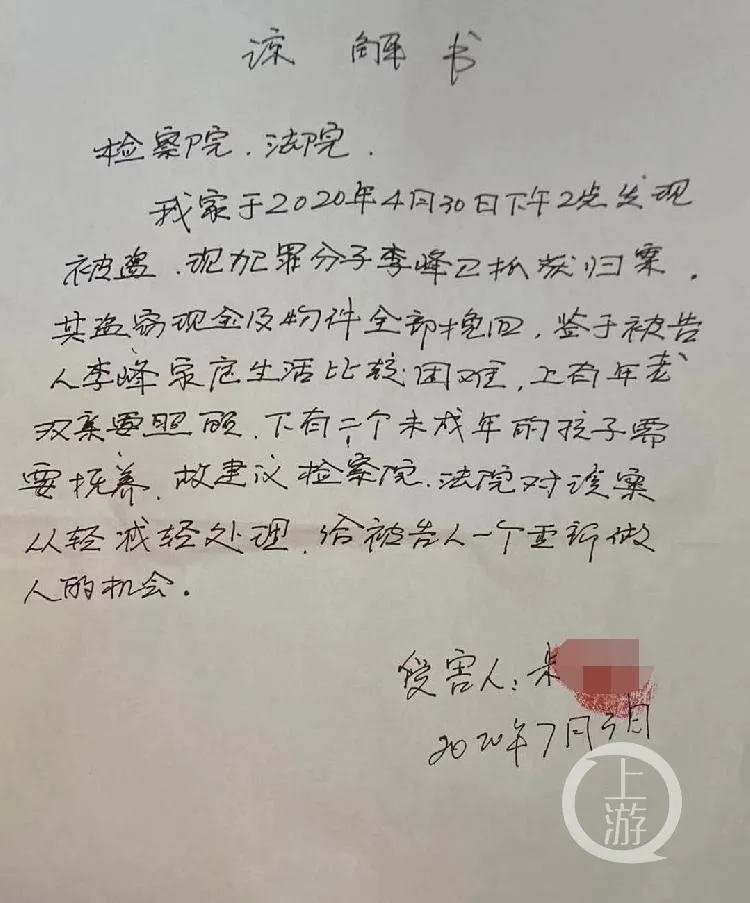 谅解书
检察院、法院.
我家于2020年4月30日下午2点发现
被盗、现犯罪分子李峰已抓获归案.
其盗窃现金及物件全部挽回,鉴于被告
人李峰家庭生活比较困难,上有年老
双亲要照顾、下有二个未成年的孩子需
要抚养,故建议检察院、法院对该案
从轻减轻处理,给被告人一个重新做
人的机会.
受害人:朱
2020年7月3日
上游